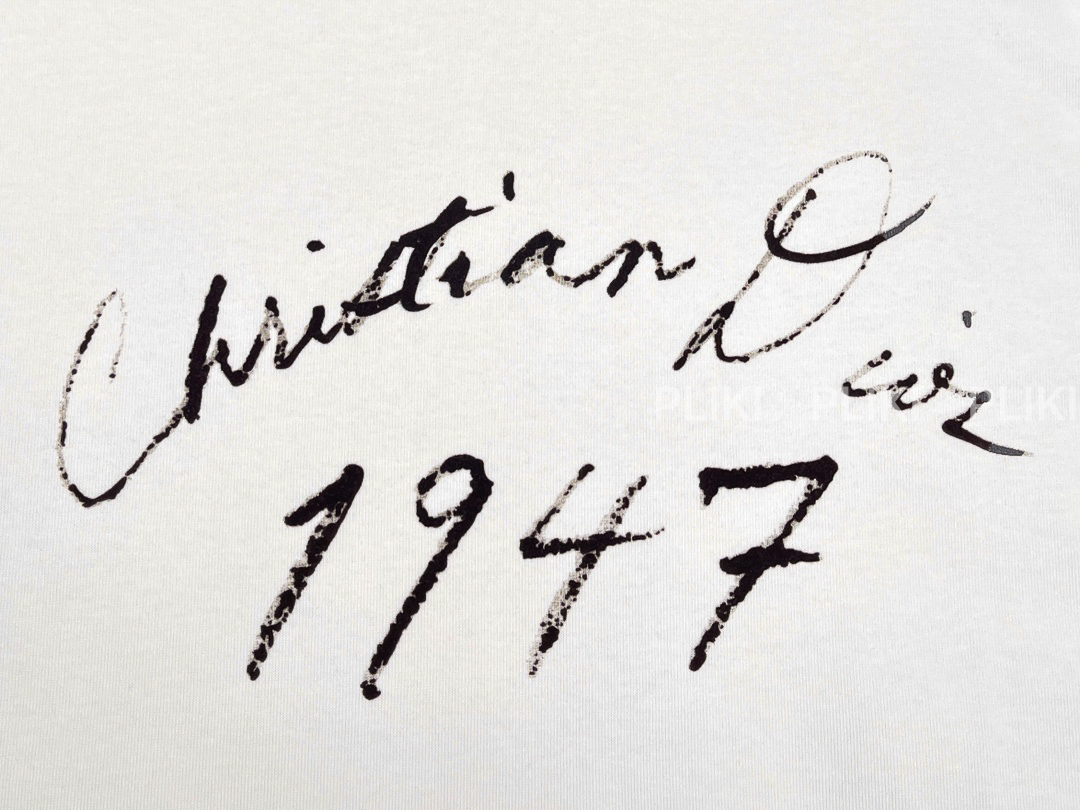 Christian Dior
PLIKI PLIKI PLIKI
1947